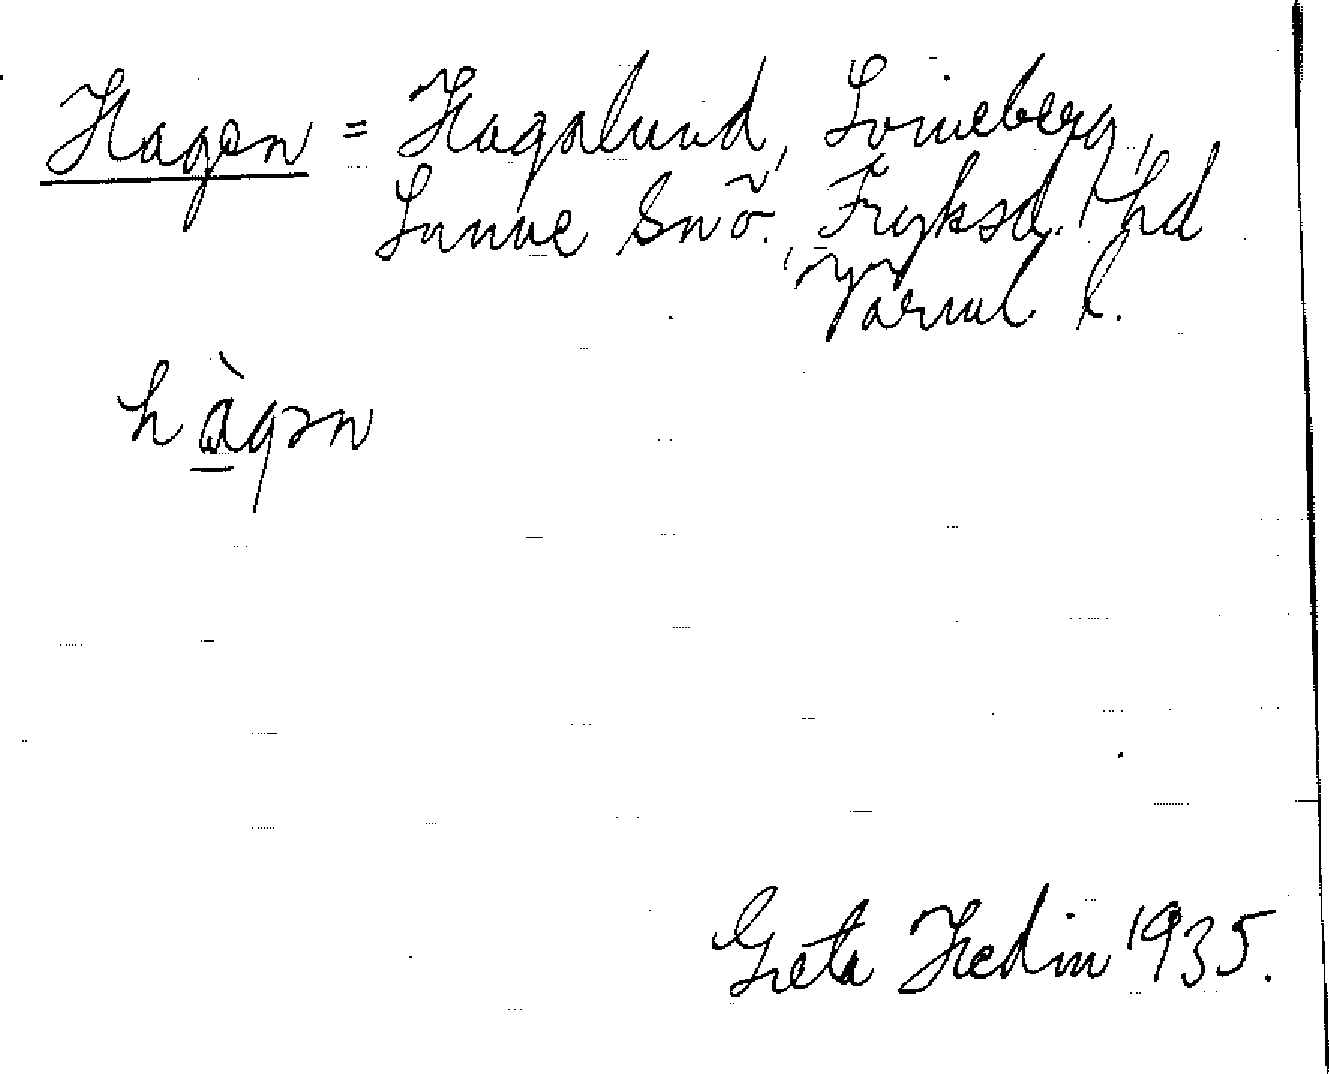 Hagen = Hagalund, Svineberg,
Sunne Snö., Fryksd. hd
Värml. l.
hàgən
Greta Hedin 1935.